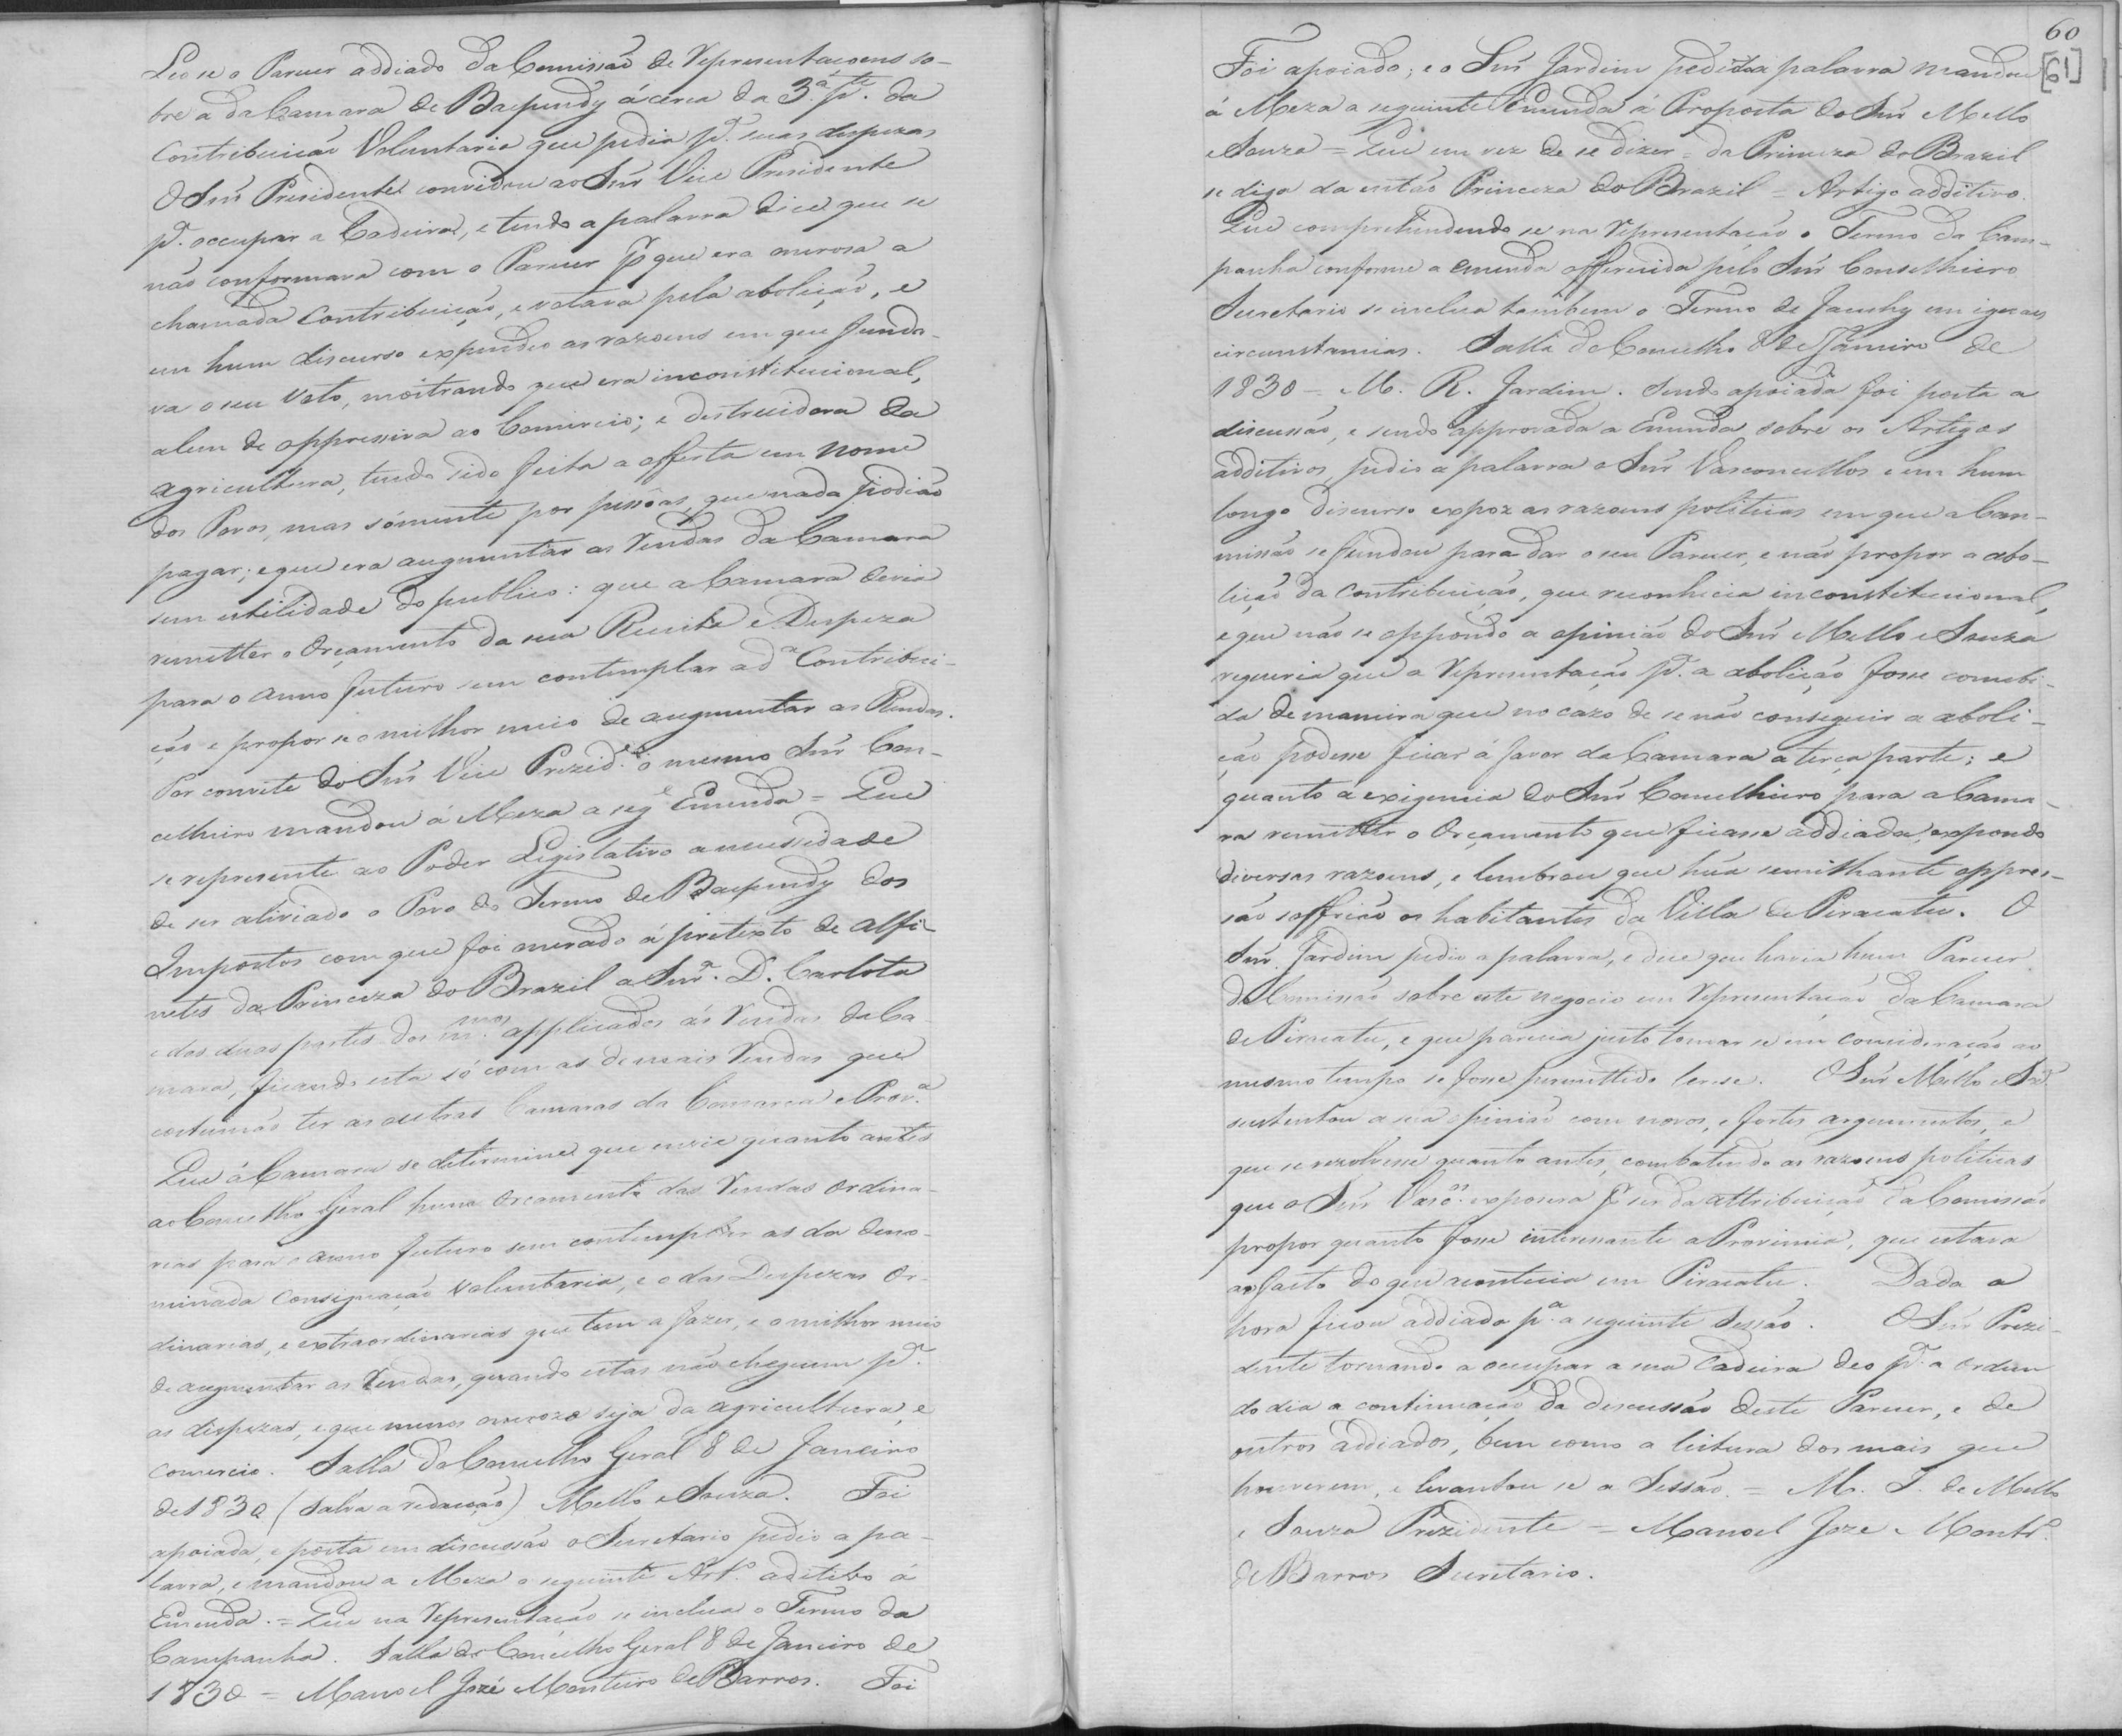 Leo se o Parecer addiado da Comissaõ de Representaçoens so-
bre a da Camara de Baependy ácerca da 3.ª p.te da
Contribuiçaõ Voluntaria que pedia p.ª suas despezas
O Snr' Presidente convidou ao Snr' Vice Presidente
p.ª occupar a Cadeira, e tendo a palavra dice que se
naõ conformava com o Parecer p.r que era onerosa a
chamada Contribuiçaõ, e votava pela aboliçaõ, e
em hum discurso expendeo as razoens em que funda-
va o seu Voto, mostrando que era inconstitucional,
alem de oppressiva ao Comercio; e destruidora da
agricultura, tendo sido feita a offerta em nome
dos Povos, mas sómente por pessôas, que nada podiaõ
pagar; e que era augmentar as Rendas da Camara
sem utilidade do publico: que a Camara devia
remetter o Orçamento da sua Receita e Despeza
para o anno futuro sem contemplar a d.ª Contribui-
çaõ e propor se o milhor meio de augmentar as Rendas.
Por convite do Snr' Vice Prezid.e o mesmo Snr' Con-
celheiro mandou á Meza a seg.e Emenda = Que
se represente ao Poder Legislativo a necessidade
de ser aliviado o Povo do Termo de Baependy dos
Impostos com que foi onerado á pretexto de alfi-
netes da Princeza do Brazil a Snr.ª D. Carlota
e das duas partes dos m.mos applicados ás Rendas da Ca-
mara, ficando esta só com as demais Rendas que
costumaõ ter as outras Camaras da Comarca e Prov.ª
Que á Camara se determine que envie quanto antes
ao Concelho Geral hum Orçamento das Rendas Ordina-
rias para o anno futuro sem contemplar as da deno-
minada Consignaçaõ Voluntaria, e o das Despezas Or-
dinarias, e extraordinarias que tem a fazer, e o milhor meio
de augmentar as Rendas, quando estas naõ cheguem p.ª
as dispezas, e que menos onerozo seja da agricultura, e
comercio. Salla do Concelho Geral 8 de Janeiro
de 1830 (Salva a redacçaõ) Mello e Souza. Foi
apoiada, e posta em discussaõ o Secretario pedio a pa-
lavra, e mandou a Meza o seguinte Art.º aditivo á
Emenda. = Que na Representaçaõ se inclua o Termo da
Campanha. Salla do Concelho Geral 8 de Janeiro de
1830 = Manoel Jozé Monteiro de Barros. Foi
60
[61]
Foi apoiado; e o Snr' Jardim pedida a palavra mandou
á Meza a seguinte Emenda á Proposta do Snr' Mello
e Souza = Que em vez de se dizer = da Princeza do Brazil
se diga da entaõ Princeza do Brazil = Artigo additivo.
Que comprehendendo se na Representaçaõ o Termo da Cam-
panha conforme a emenda offerecida pelo Snr' Conselheiro
Secretario se inclua tambem o Termo de Jacuhy em iguaes
circunstancias. Salla do Concelho 8 de Janeiro de
1830 = M. R. Jardim. Sendo apoiada foi posta a
discussaõ, e sendo approvada a Emenda sobre os Artigos
additivos, pedio a palavra o Snr' Vasconcellos e em hum
longo discurso expoz as razoens politicas em que a Com-
missaõ se fundou para dar o seu Parecer, e naõ propor a abo-
liçaõ da Contribuiçaõ, que reconhecia inconstitucional,
e que naõ se oppondo a opiniaõ do Snr' Mello e Souza
requeria que a Representaçaõ p.ª a aboliçaõ fosse concebi-
da de maneira que no cazo de se naõ conseguir a aboli-
çaõ podesse ficar á favor da Camara a terça parte; e
quanto a exigencia do Snr' Concelheiro para a Cama-
ra remetter o Orçamento que ficasse addiada, expondo
diversas razoens, e lembrou que hũa semilhante oppres-
saõ soffriaõ os habitantes da Villa de Piracatu. O
Snr'. Jardim pedio a palavra, e dice que havia hum Parecer
da Comissaõ sobre este negocio em Representaçaõ da Camara
de Piracatu, e que parecia justo tomar se em consideraçaõ ao
mesmo tempo se fosse permittido ler se. O Snr' Mello e Sz.ª
sustentou a sua opiniaõ com novos, e fortes argumentos, e
que se rezolvesse quanto antes, combatendo as razoens politicas
que o Snr' Vasc.os expozera p.r ser da attribuiçaõ da Comissaõ
propor quanto fosse interessante a Provincia, que estava
ao facto do que acontecia em Piracatu. Dada a
hora ficou addiada p.ª a seguinte Sessaõ. O Snr' Prezi-
dente tornando a occupar a sua Cadeira deo p.ª a ordem
do dia a continuaçaõ da discussaõ deste Parecer, e de
outros addiados, bem como a leitura dos mais que
houverem, e levantou se a Sessaõ. = M. I. de Mello
e Souza Prezidente = Manoel Joze Montr.º
de Barros Secretario.